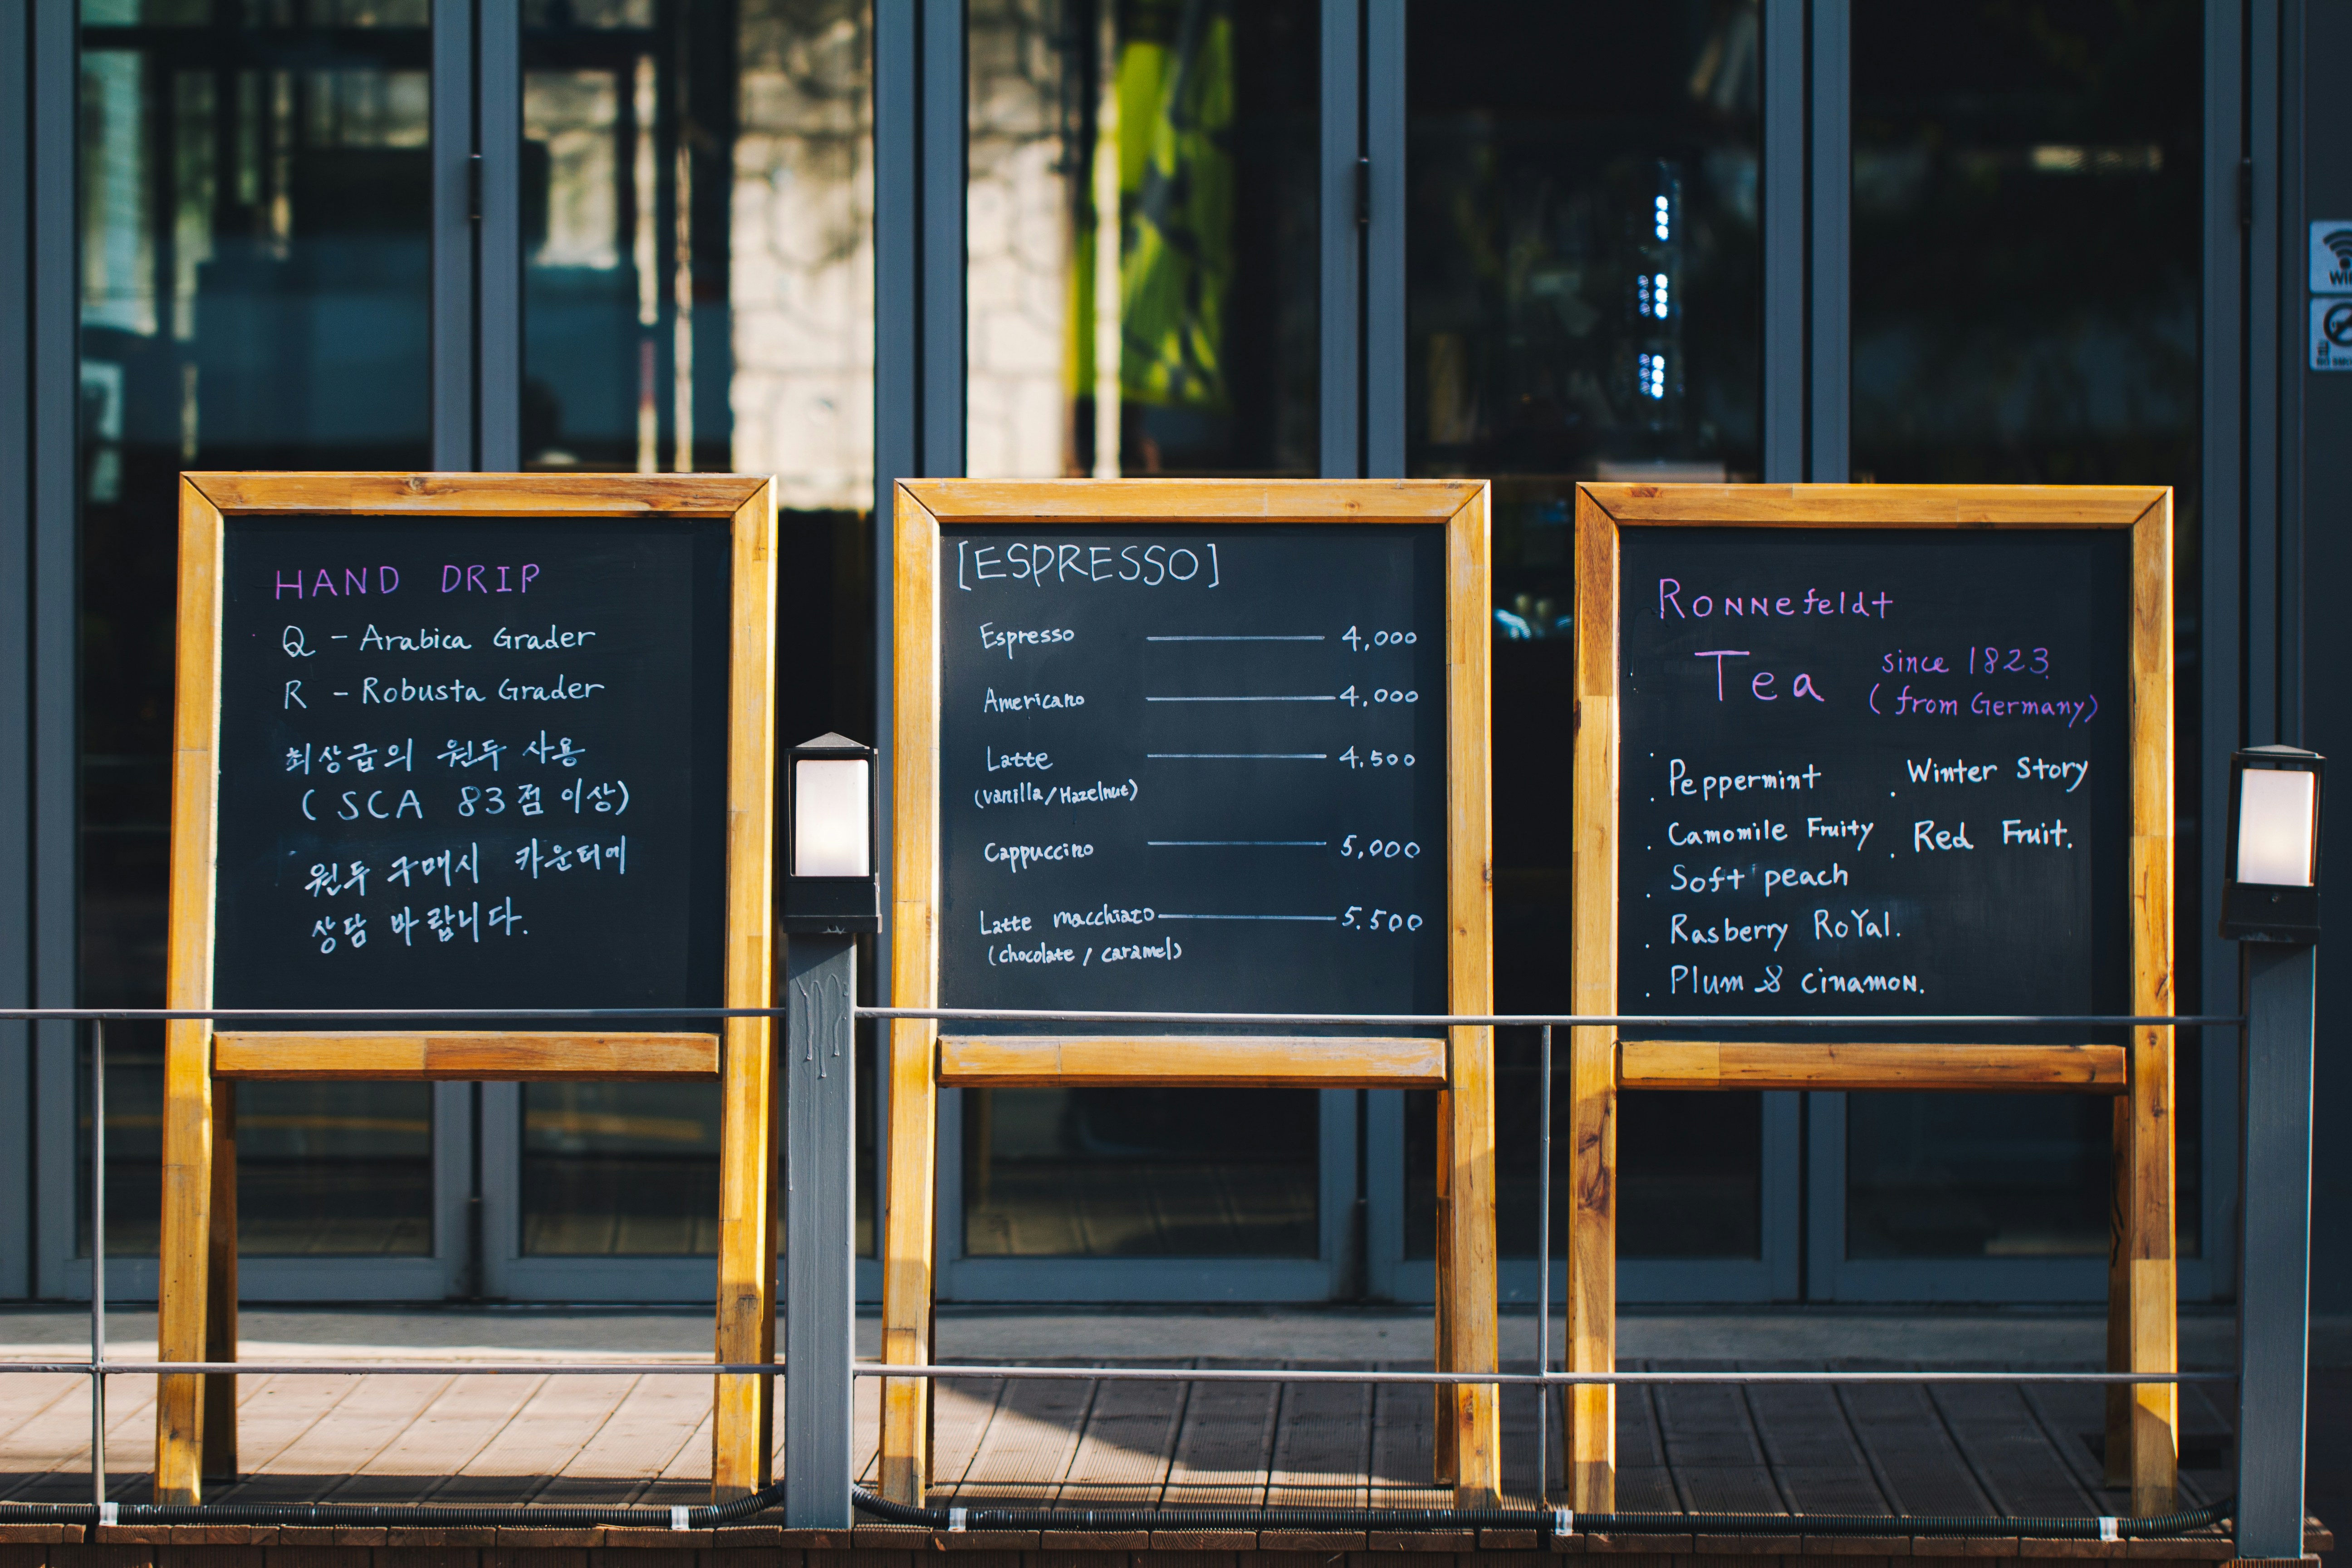 HAND DRIP
Q - Arabica Grader
R - Robusta Grader
최상급의 원두 사용
(SCA 83점 이상)
원두 구매시 카운터에
상담 바랍니다.
[ESPRESSO]
Espresso 4,000
Americano 4,000
Latte 4.500
(vanilla/Hazelnut)
Cappuccino 5,000
Latte macchiato 5.500
(chocolate / caramel)
Ronnefeldt
Tea since 1823.
(from Germany)
. Peppermint
. Camomile Fruity
. Soft peach
. Rasberry RoYal.
. Plum & cinamon.
. Winter Story
. Red Fruit.